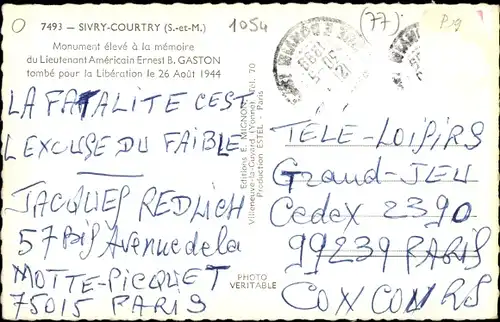 7493 - SIVRY-COURTRY (S.-et-M.)
Monument élevé à la mémoire
du Lieutenant Américain Ernest B. GASTON
tombé pour la Libération le 26 Août 1944
1054
(77)
P19
LA FATALITE C'EST
L'EXCUSE DU FAIBLE
JACQUES REDLICH
57 Bis Avenue de la
MOTTE-PICQUET
75015 PARIS
Editions E. MIGNON,
Villeneuve-la-Guyard (Yonne) Tél. 70
Production ESTEL - Paris
PHOTO
VERITABLE
TÉLÉ-LOISIRS
GRAND-JEU
Cedex 2390
99239 PARIS
CONCOURS